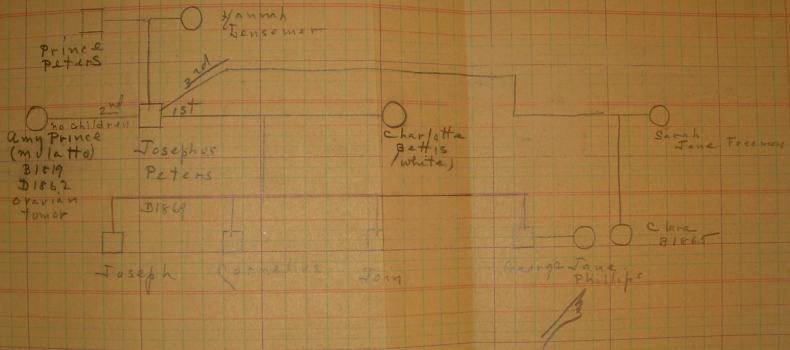 Hannah
Prince
Peters
3rd
2nd
1st
no children
Amy Prince
(mulatto)
B1819
D1862
ovarian
tumor
Josephus
Peters
D1869
Charlotte
Bettis
(white)
Sarah
Jane Freeman
Clara
B1865
Joseph
Cornelius
John
George
Jane
Phillips